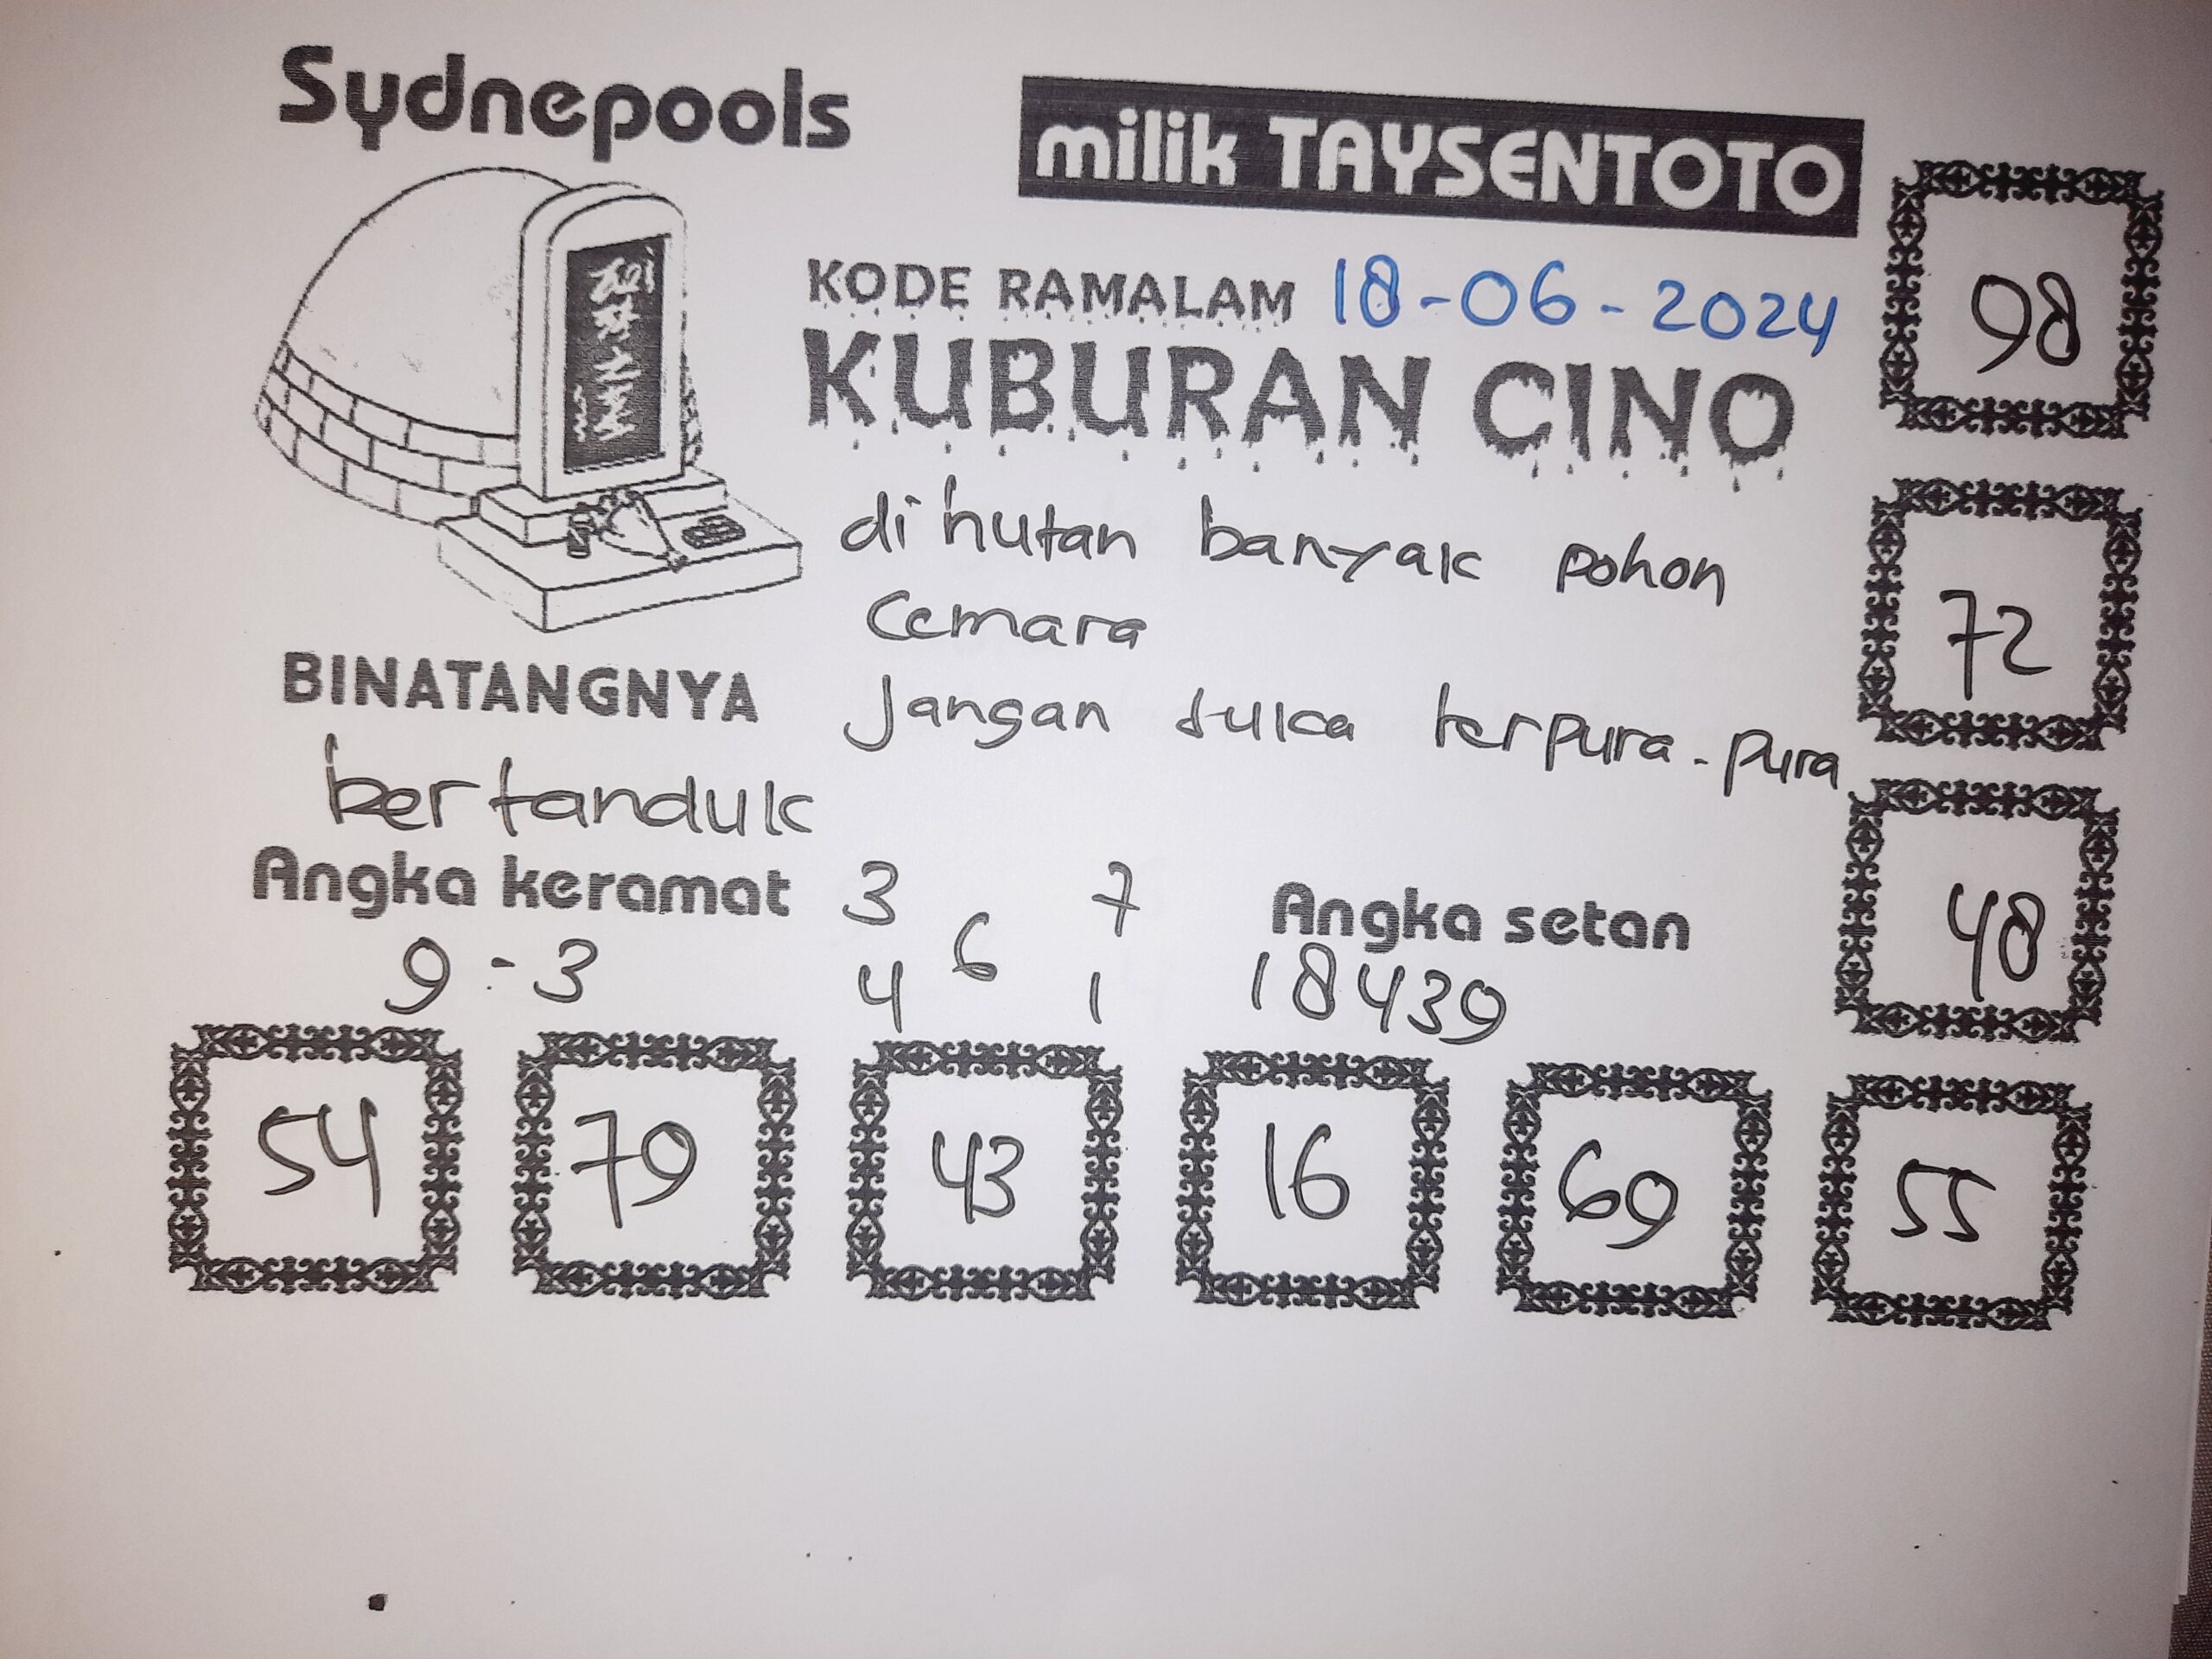 Sydnepools
milik TAYSENTOTO
KODE RAMALAM 18-06-2024
KUBURAN CINO
98
di hutan banyak pohon
Cemara
72
BINATANGNYA
Jangan suka terpura-pura
bertanduk
48
Angka keramat
3 7
6
4 1
9-3
Angka setan
18439
54 79 43 16 69 55